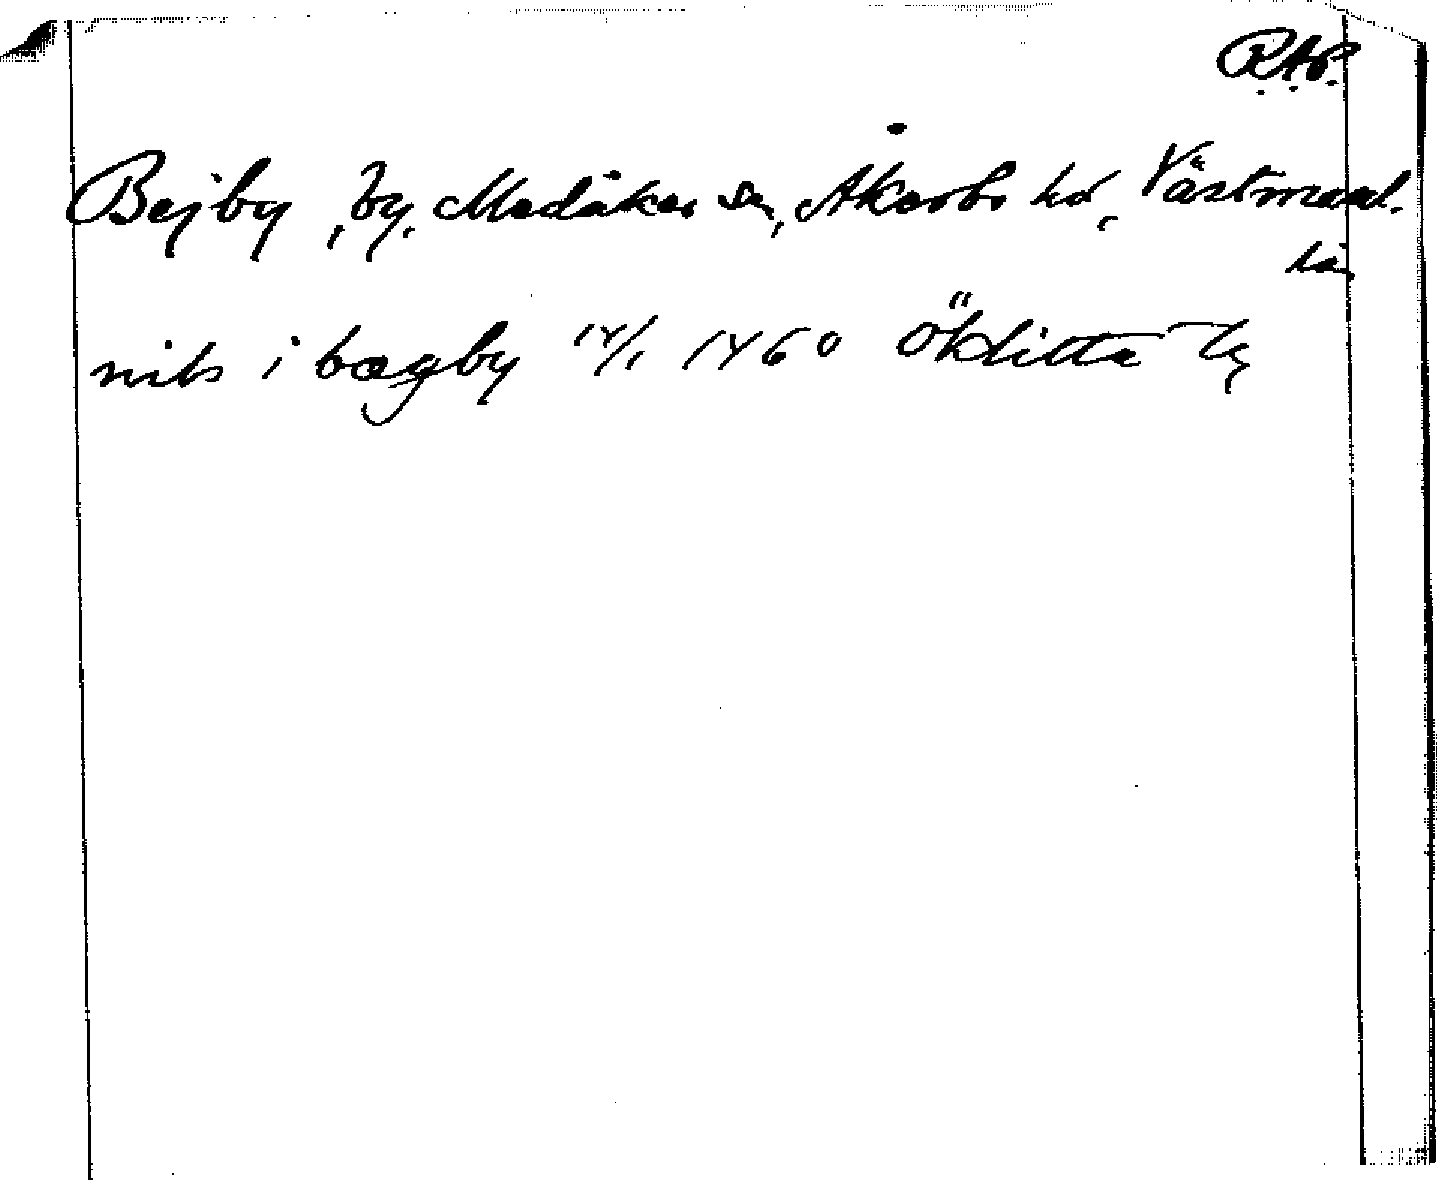 R.A.P.
Bejby, by, Medåker sn, Åkerbo hd, Västmanl.
län
nils i bægby 14/1 1460 Öklitta by